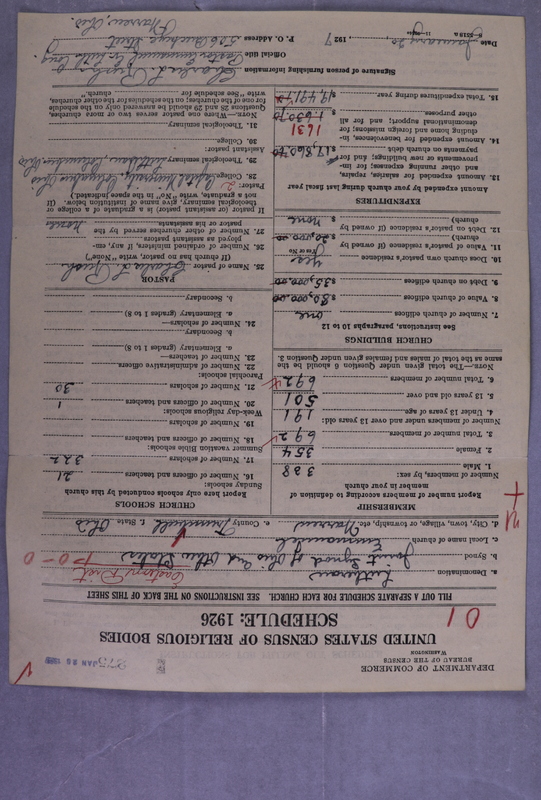 DEPARTMENT OF COMMERCE
BUREAU OF THE CENSUS
WASHINGTON
273 JAN 25
UNITED STATES CENSUS OF RELIGIOUS BODIES
SCHEDULE: 1926
01
FILL OUT A SEPARATE SCHEDULE FOR EACH CHURCH. SEE INSTRUCTIONS ON THE BACK OF THIS SHEET
a. Denomination Lutheran
Eastern Dist
b. Synod Joint Synod of Ohio and Other States
c. Local name of church Emmanuel
d. City, town, village, or township, etc. Warren e. County Trumbull f. State Ohio
MEMBERSHIP
Report number of members according to definition of member in your church
Number of members, by sex:
1. Male 338
2. Female 354
3. Total number of members 692
Number of members under and over 13 years old:
4. Under 13 years of age 191
5. 13 years old and over 501
6. Total number of members 692
NOTE.—The total given under Question 6 should be the same as the total of males and females given under Question 3.
CHURCH BUILDINGS
See instructions, paragraphs 10 to 12
7. Number of church edifices one
8. Value of church edifices $80,000.00
9. Debt on church edifices $35,000.00
10. Does church own pastor's residence yes
(Yes or No)
11. Value of pastor's residence (if owned by church) $20,000.00
12. Debt on pastor's residence (if owned by church) $ none
EXPENDITURES
Amount expended by your church during last fiscal year
13. Amount expended for salaries, repairs, and other running expenses; for improvements or new building; and for payments on church debt
14. Amount expended for benevolences, including home and foreign missions; for denominational support; and for all other purposes 1631 $1,630.70
15. Total expenditures during year
CHURCH SCHOOLS
Report here only schools conducted by this church
Sunday schools:
16. Number of officers and teachers 21
17. Number of scholars 322
Summer vacation Bible schools:
18. Number of officers and teachers
19. Number of scholars
Week-day religious schools:
20. Number of officers and teachers 1
21. Number of scholars 30
Parochial schools:
22. Number of administrative officers
23. Number of teachers—
a. Elementary (grades 1 to 8)
b. Secondary
24. Number of scholars—
a. Elementary (grades 1 to 8)
b. Secondary
PASTOR
25. Name of pastor Charles L
(If church has no pastor, write "None")
26. Number of ordained ministers, if any, employed as assistant pastors
27. Number of other churches served by the pastor or his assistants
If pastor (or assistant pastor) is a graduate of a college or theological seminary, give name of institution below. (If not a graduate, write "No" in the space indicated.)
Pastor: 2
28. College Capital University, Columbus Ohio
29. Theological seminary Columbus Ohio
Assistant pastor:
30. College
31. Theological seminary
NOTE.—Where one pastor serves two or more churches, Questions 25 and 28 should be answered only on the schedule for one of the churches; on the schedules for the other churches, write "See schedule for church."
Signature of person furnishing information Charles L
Official title Pastor Emmanuel Ev. Luth. Cong.
P. O. Address 506 Street
Warren, Ohio
Date January 20, 1927